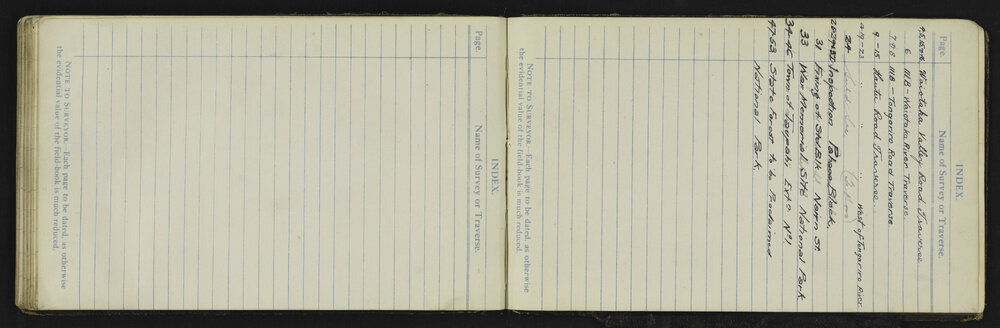 INDEX.
Page. Name of Survey or Traverse.
Waiotaka Valley Road Traverse
6 IIIB - Waiotaka River Traverse
7 & 8 IIIB - Tongariro Road Traverse
9-15 Hautu Road Traverse
19-23 " " " West of Tongariro River
24
Inspection Block.
31 Fixing of Std Blk Nairn St.
33 War Memorial Site National Park
34-46 Town of Taurewa Extn No 1
47-53 State Forest to be Proclaimed
National Park.
NOTE TO SURVEYOR.—Each page to be dated, as otherwise
the evidential value of the field-book is much reduced.
INDEX.
Page. Name of Survey or Traverse.
NOTE TO SURVEYOR.—Each page to be dated, as otherwise
the evidential value of the field-book is much reduced.